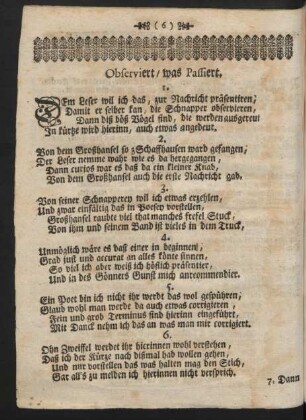 ( 6 )
Observiert, was Passiert,
1.
Dem Leser wil ich das, zur Nachricht präsentiren,
Damit er selber kan, die Schnapper observieren,
Dann diß böß Vögel sind, die werden ausgereut
In kürtze wird hierinn, auch etwas angedeut.
2.
Von dem Großhansel so z Schaffhausen ward gefangen,
Der Leser nemme wahr wie es da hergegangen,
Dann curios war es daß da ein kleiner Knab,
Von dem Großhansel auch die erste Nachricht gab.
3.
Von seiner Schnapperey wil ich etwas erzehlen,
Und zwar einfältig das in Poesey vorstellen,
Großhansel raubte viel that manches frefel Stuck,
Von ihm und seinem Band ist vieles in dem Truck,
4.
Unmöglich wäre es daß einer in beginnen,
Grad just und accurat an alles könte sinnen,
So viel ich aber weiß ich höflich präsentier,
Und in des Gönners Gunst mich anrecommendier.
5.
Ein Poet bin ich nicht ihr werdt das wol gespühren,
Glaub wohl man werde da auch etwas corrigieren,
Fein und grob Terminus sind hierinn eingeführt,
Mit Danck nehm ich das an was man mir corrigiert.
6.
Ohn Zweiffel werdet ihr hierinnen wohl verstehen,
Daß ich der Kürze nach dißmal hab wollen gehen,
Und nur vorstellen das was halten mag den Stich,
Gar all's zu melden ich hierinnen nicht versprich.
7. Dann